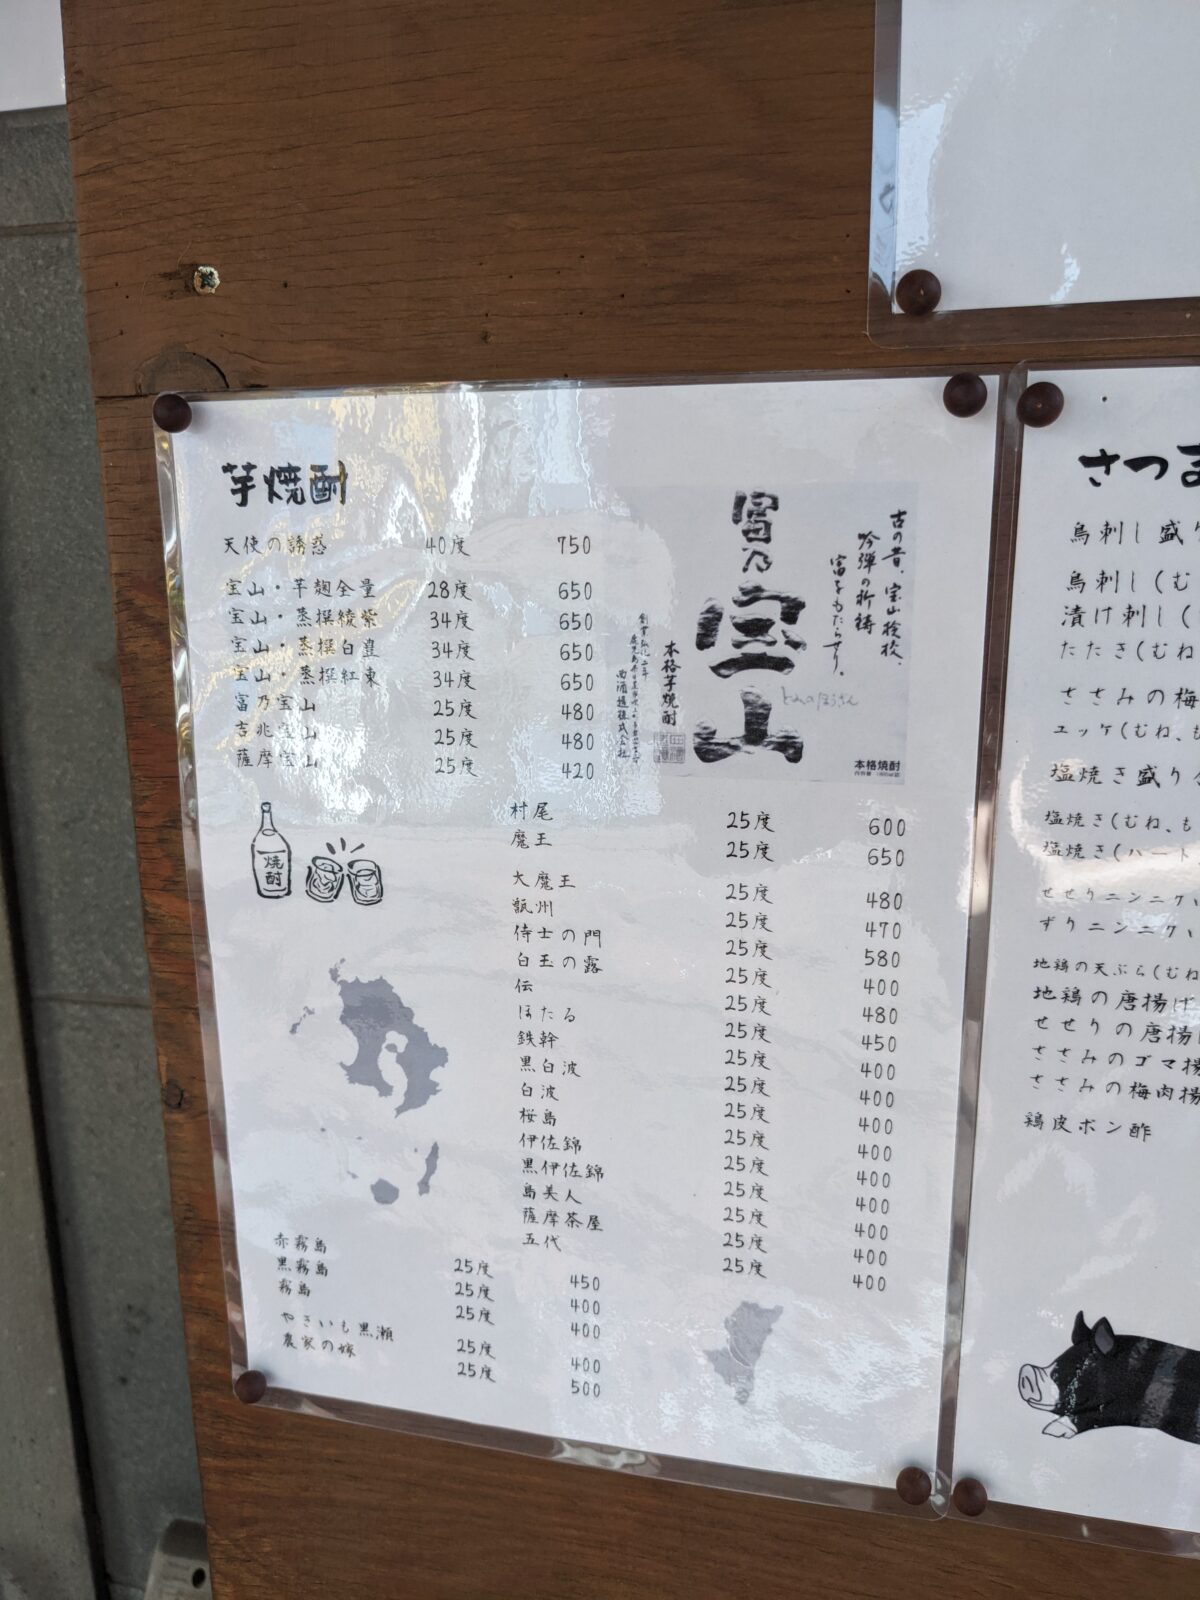 芋焼酎
天使の誘惑 40度 750
宝山・芋麹全量 28度 650
宝山・蒸撰綾紫 34度 650
宝山・蒸撰白豊 34度 650
宝山・蒸撰紅東 34度 650
富乃宝山 25度 480
吉兆宝山 25度 480
薩摩宝山 25度 420
古の昔、宝山検校、
吟弾の祈祷
富をもたらせり。
富乃
宝山
とみのほうざん
本格芋焼酎
西酒造株式会社
本格焼酎
焼酎
村尾 25度 600
魔王 25度 650
大魔王 25度 480
甑州 25度 470
侍士の門 25度 580
白玉の露 25度 400
伝 25度 480
ほたる 25度 450
鉄幹 25度 400
黒白波 25度 400
白波 25度 400
桜島 25度 400
伊佐錦 25度 400
黒伊佐錦 25度 400
島美人 25度 400
薩摩茶屋 25度 400
五代 25度 400
赤霧島 25度 450
黒霧島 25度 400
霧島 25度 400
やきいも黒瀬 25度 400
農家の嫁 25度 500
さつま
鳥刺し盛り
鳥刺し(む
漬け刺し(
たたき(むね
ささみの梅
ユッケ(むね、も
塩焼き盛り合
塩焼き(むね、も
塩焼き(ハート
せせりニンニク、
ずりニンニク、
地鶏の天ぷら(むね
地鶏の唐揚げ
せせりの唐揚げ
ささみのゴマ揚
ささみの梅肉揚
鶏皮ポン酢